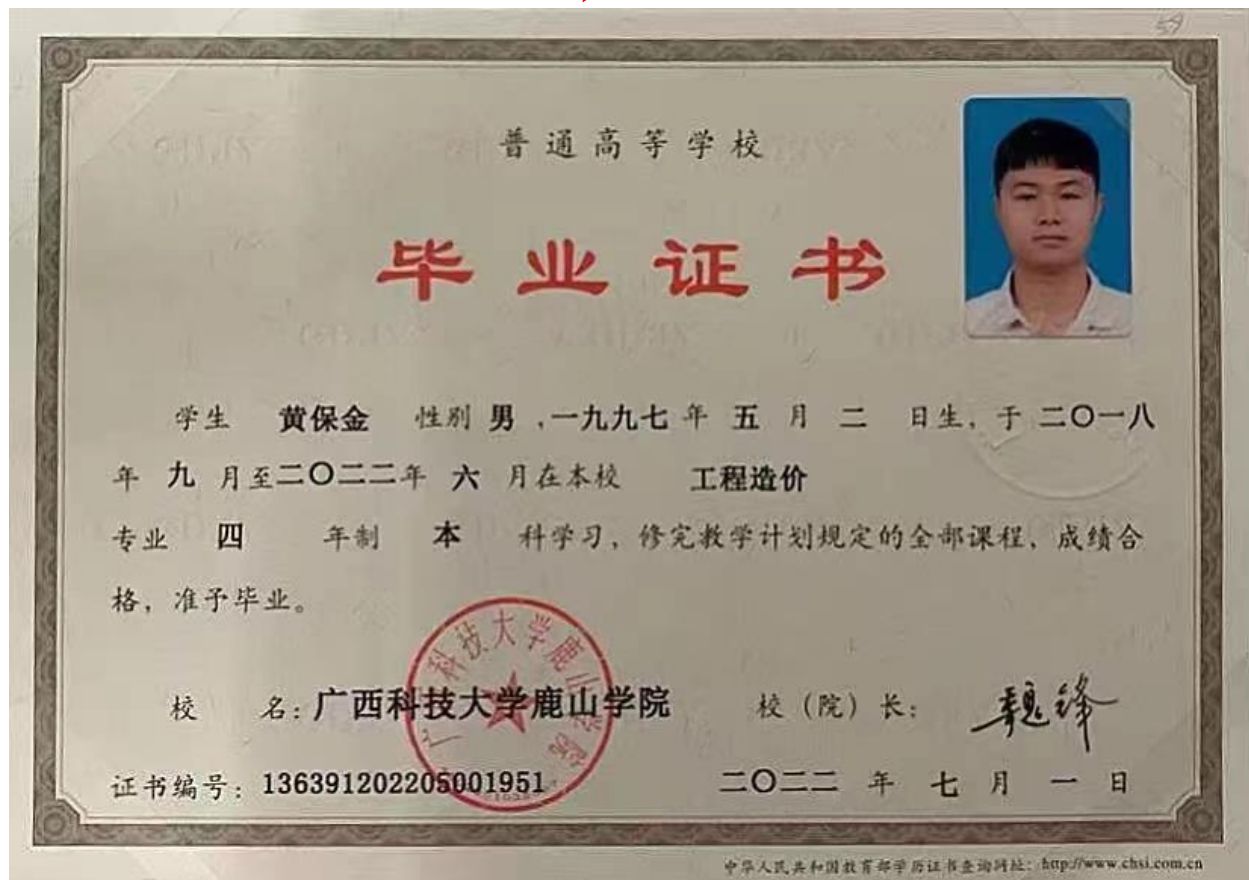 59
普通高等学校
毕业证书
学生 黄保金 性别 男 ,一九九七 年 五 月 二 日生, 于 二〇一八
年 九 月至二〇二二年 六 月在本校 工程造价
专业 四 年制 本 科学习, 修完教学计划规定的全部课程, 成绩合
格, 准予毕业。
广西科技大学鹿山学院
校 名: 广西科技大学鹿山学院 校 (院) 长: 魏锋
证书编号: 136391202205001951 二〇二二 年 七 月 一 日
中华人民共和国教育部学历证书查询网址: http://www.chsi.com.cn